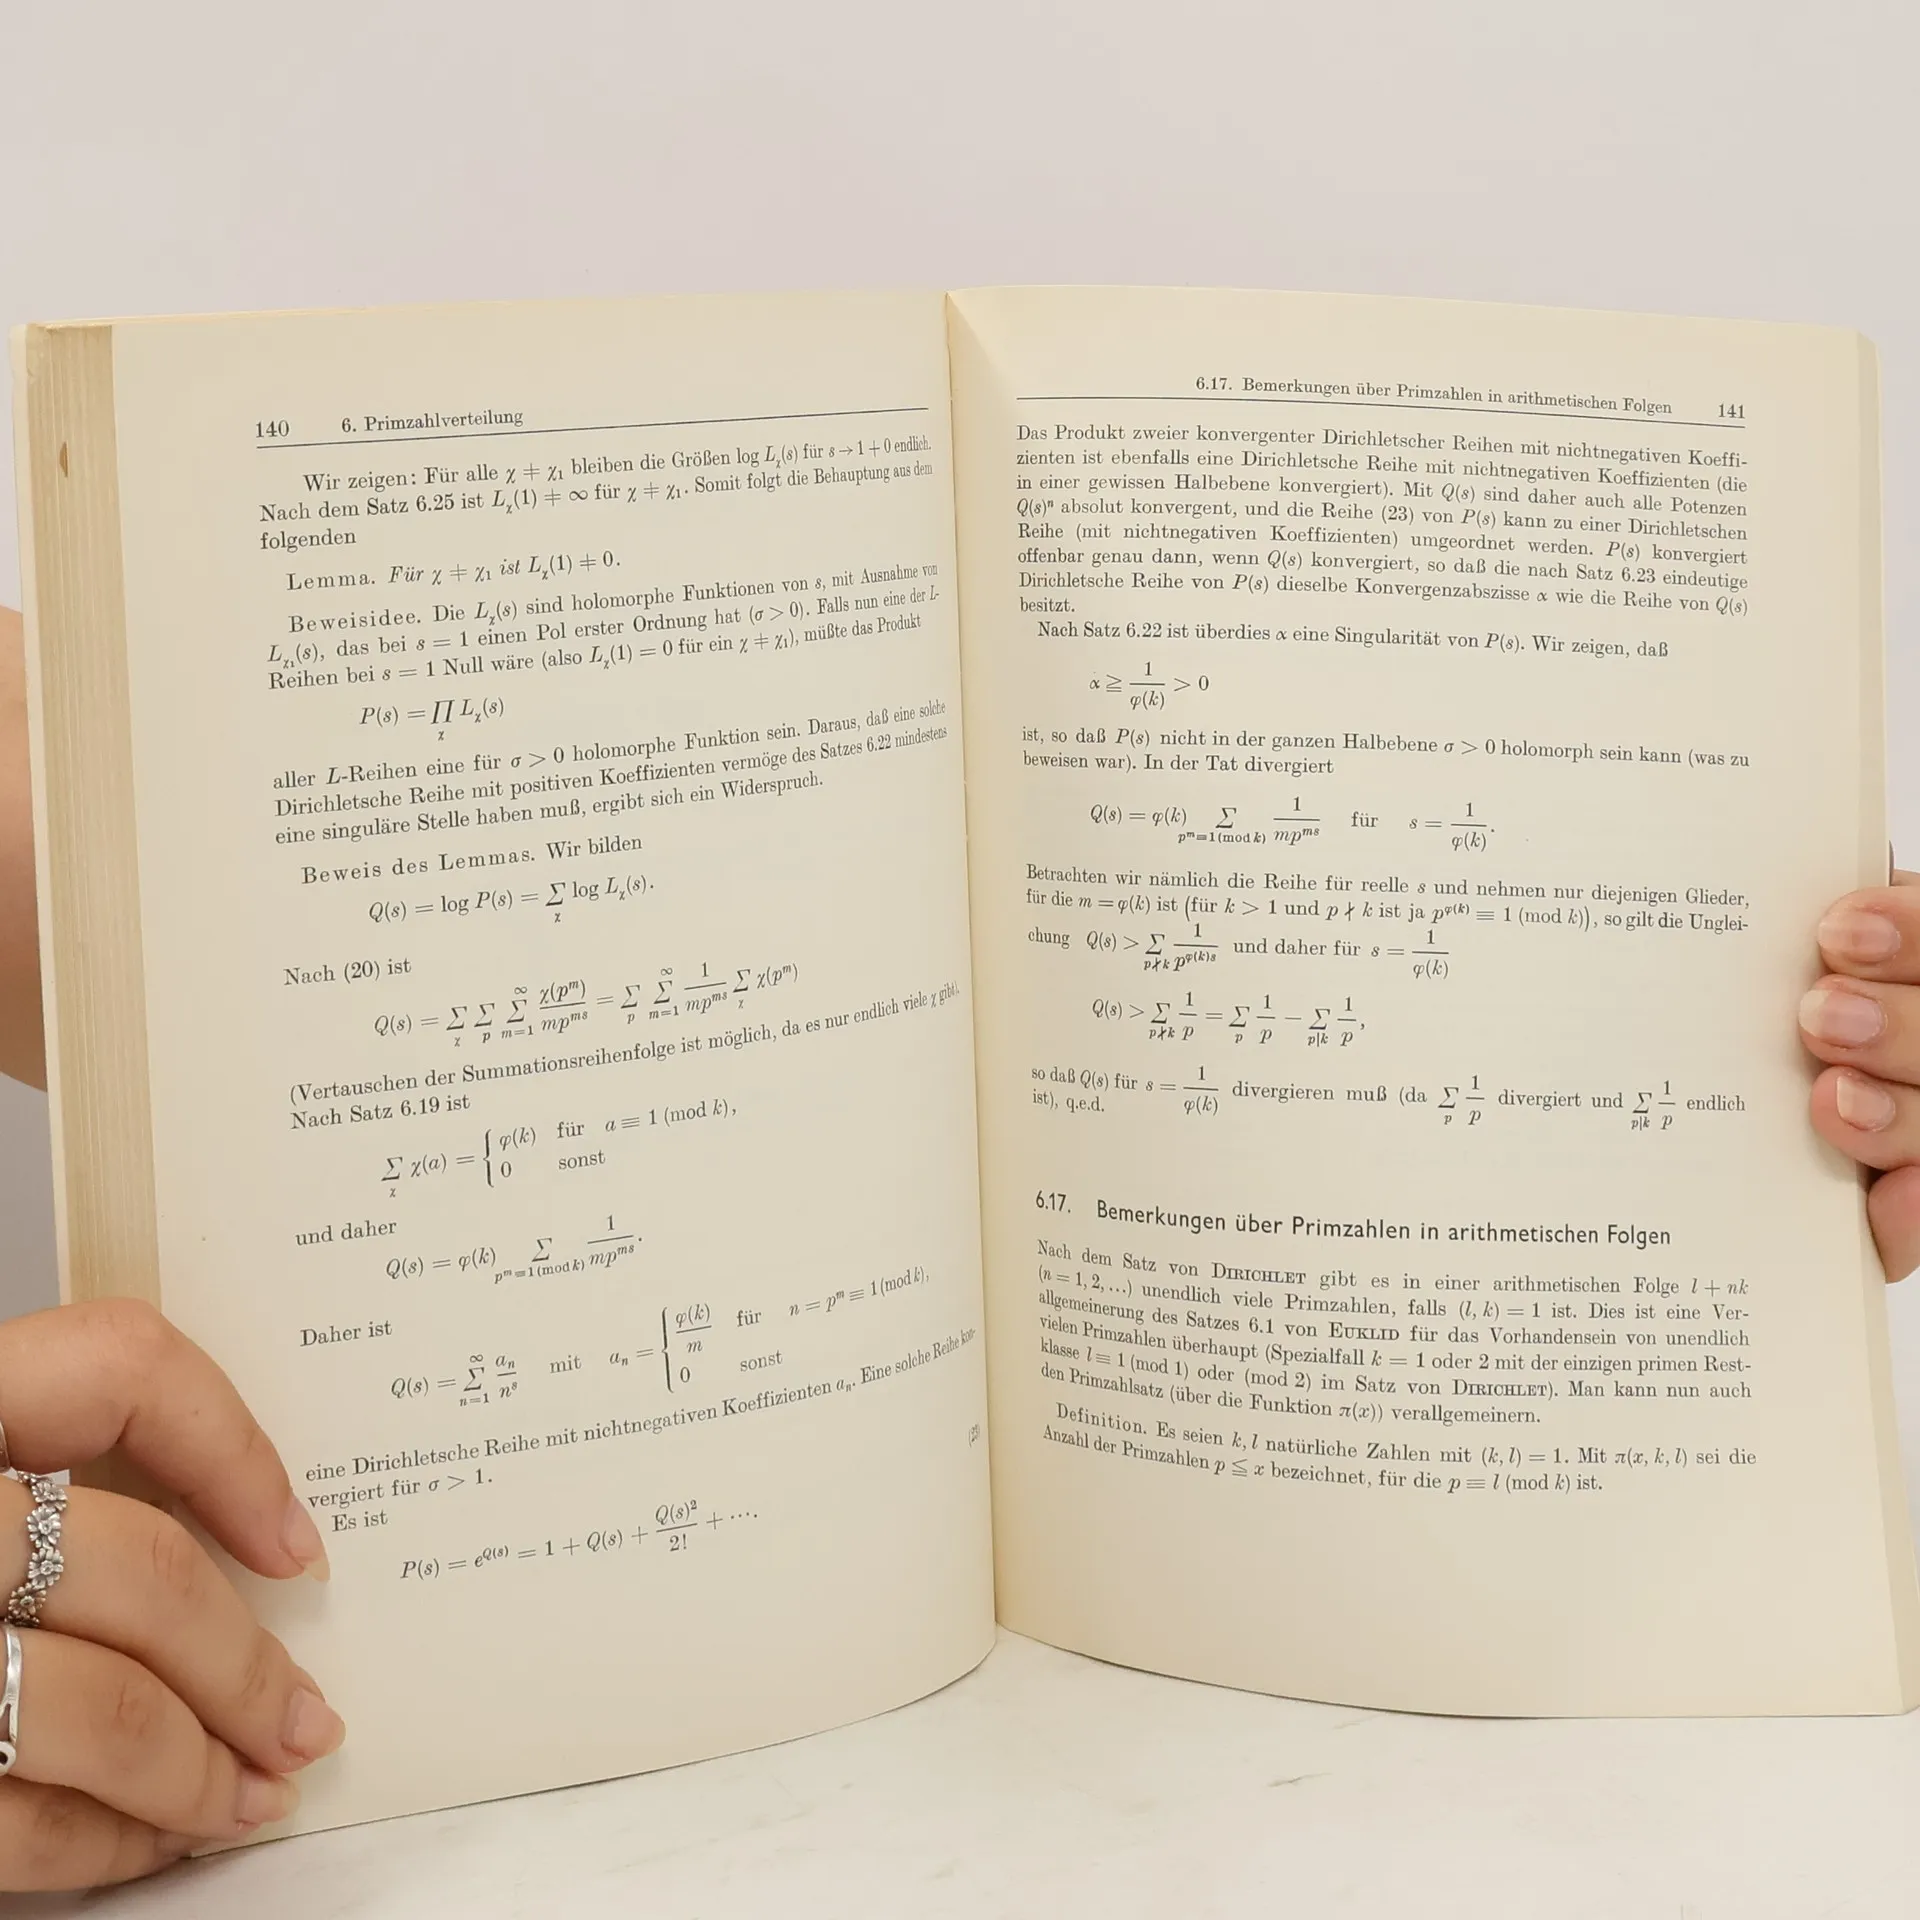 140 6. Primzahlverteilung
Wir zeigen: Für alle χ ≠ χ₁ bleiben die Größen log L_χ(s) für s → 1 + 0 endlich.
Nach dem Satz 6.25 ist L_χ(1) ≠ ∞ für χ ≠ χ₁. Somit folgt die Behauptung aus dem
folgenden
Lemma. Für χ ≠ χ₁ ist L_χ(1) ≠ 0.
Beweisidee. Die L_χ(s) sind holomorphe Funktionen von s, mit Ausnahme von
L_χ₁(s), das bei s = 1 einen Pol erster Ordnung hat (σ > 0). Falls nun eine der L-
Reihen bei s = 1 Null wäre (also L_χ(1) = 0 für ein χ ≠ χ₁), müßte das Produkt
P(s) = ∏_χ L_χ(s)
aller L-Reihen eine für σ > 0 holomorphe Funktion sein. Daraus, daß eine solche
Dirichletsche Reihe mit positiven Koeffizienten vermöge des Satzes 6.22 mindestens
eine singuläre Stelle haben muß, ergibt sich ein Widerspruch.
Beweis des Lemmas. Wir bilden
Q(s) = log P(s) = ∑_χ log L_χ(s).
Nach (20) ist
Q(s) = ∑_χ ∑_p ∑_{m=1}^∞ χ(p^m)/(mp^{ms}) = ∑_p ∑_{m=1}^∞ 1/(mp^{ms}) ∑_χ χ(p^m)
(Vertauschen der Summationsreihenfolge ist möglich, da es nur endlich viele χ gibt).
Nach Satz 6.19 ist
∑_χ χ(a) = { φ(k) für a ≡ 1 (mod k),
0 sonst
und daher
Q(s) = φ(k) ∑_{p^m≡1(mod k)} 1/(mp^{ms}).
Daher ist
Q(s) = ∑_{n=1}^∞ a_n/n^s mit a_n = { φ(k)/m für n = p^m ≡ 1 (mod k),
0 sonst
(23)
eine Dirichletsche Reihe mit nichtnegativen Koeffizienten a_n. Eine solche Reihe kon-
vergiert für σ > 1.
Es ist
P(s) = e^{Q(s)} = 1 + Q(s) + Q(s)²/2! + ⋯.
6.17. Bemerkungen über Primzahlen in arithmetischen Folgen 141
Das Produkt zweier konvergenter Dirichletscher Reihen mit nichtnegativen Koeffi-
zienten ist ebenfalls eine Dirichletsche Reihe mit nichtnegativen Koeffizienten (die
in einer gewissen Halbebene konvergiert). Mit Q(s) sind daher auch alle Potenzen
Q(s)^n absolut konvergent, und die Reihe (23) von P(s) kann zu einer Dirichletschen
Reihe (mit nichtnegativen Koeffizienten) umgeordnet werden. P(s) konvergiert
offenbar genau dann, wenn Q(s) konvergiert, so daß die nach Satz 6.23 eindeutige
Dirichletsche Reihe von P(s) dieselbe Konvergenzabszisse α wie die Reihe von Q(s)
besitzt.
Nach Satz 6.22 ist überdies α eine Singularität von P(s). Wir zeigen, daß
α ≧ 1/φ(k) > 0
ist, so daß P(s) nicht in der ganzen Halbebene σ > 0 holomorph sein kann (was zu
beweisen war). In der Tat divergiert
Q(s) = φ(k) ∑_{p^m≡1(mod k)} 1/(mp^{ms}) für s = 1/φ(k).
Betrachten wir nämlich die Reihe für reelle s und nehmen nur diejenigen Glieder,
für die m = φ(k) ist (für k > 1 und p ∤ k ist ja p^{φ(k)} ≡ 1 (mod k)), so gilt die Unglei-
chung Q(s) > ∑_{p∤k} 1/p^{φ(k)s} und daher für s = 1/φ(k)
Q(s) > ∑_{p∤k} 1/p = ∑_p 1/p − ∑_{p|k} 1/p,
so daß Q(s) für s = 1/φ(k) divergieren muß (da ∑_p 1/p divergiert und ∑_{p|k} 1/p endlich
ist), q.e.d.
6.17. Bemerkungen über Primzahlen in arithmetischen Folgen
Nach dem Satz von DIRICHLET gibt es in einer arithmetischen Folge l + nk
(n = 1, 2, ...) unendlich viele Primzahlen, falls (l, k) = 1 ist. Dies ist eine Ver-
allgemeinerung des Satzes 6.1 von EUKLID für das Vorhandensein von unendlich
vielen Primzahlen überhaupt (Spezialfall k = 1 oder 2 mit der einzigen primen Rest-
klasse l ≡ 1 (mod 1) oder (mod 2) im Satz von DIRICHLET). Man kann nun auch
den Primzahlsatz (über die Funktion π(x)) verallgemeinern.
Definition. Es seien k, l natürliche Zahlen mit (k, l) = 1. Mit π(x, k, l) sei die
Anzahl der Primzahlen p ≦ x bezeichnet, für die p ≡ l (mod k) ist.